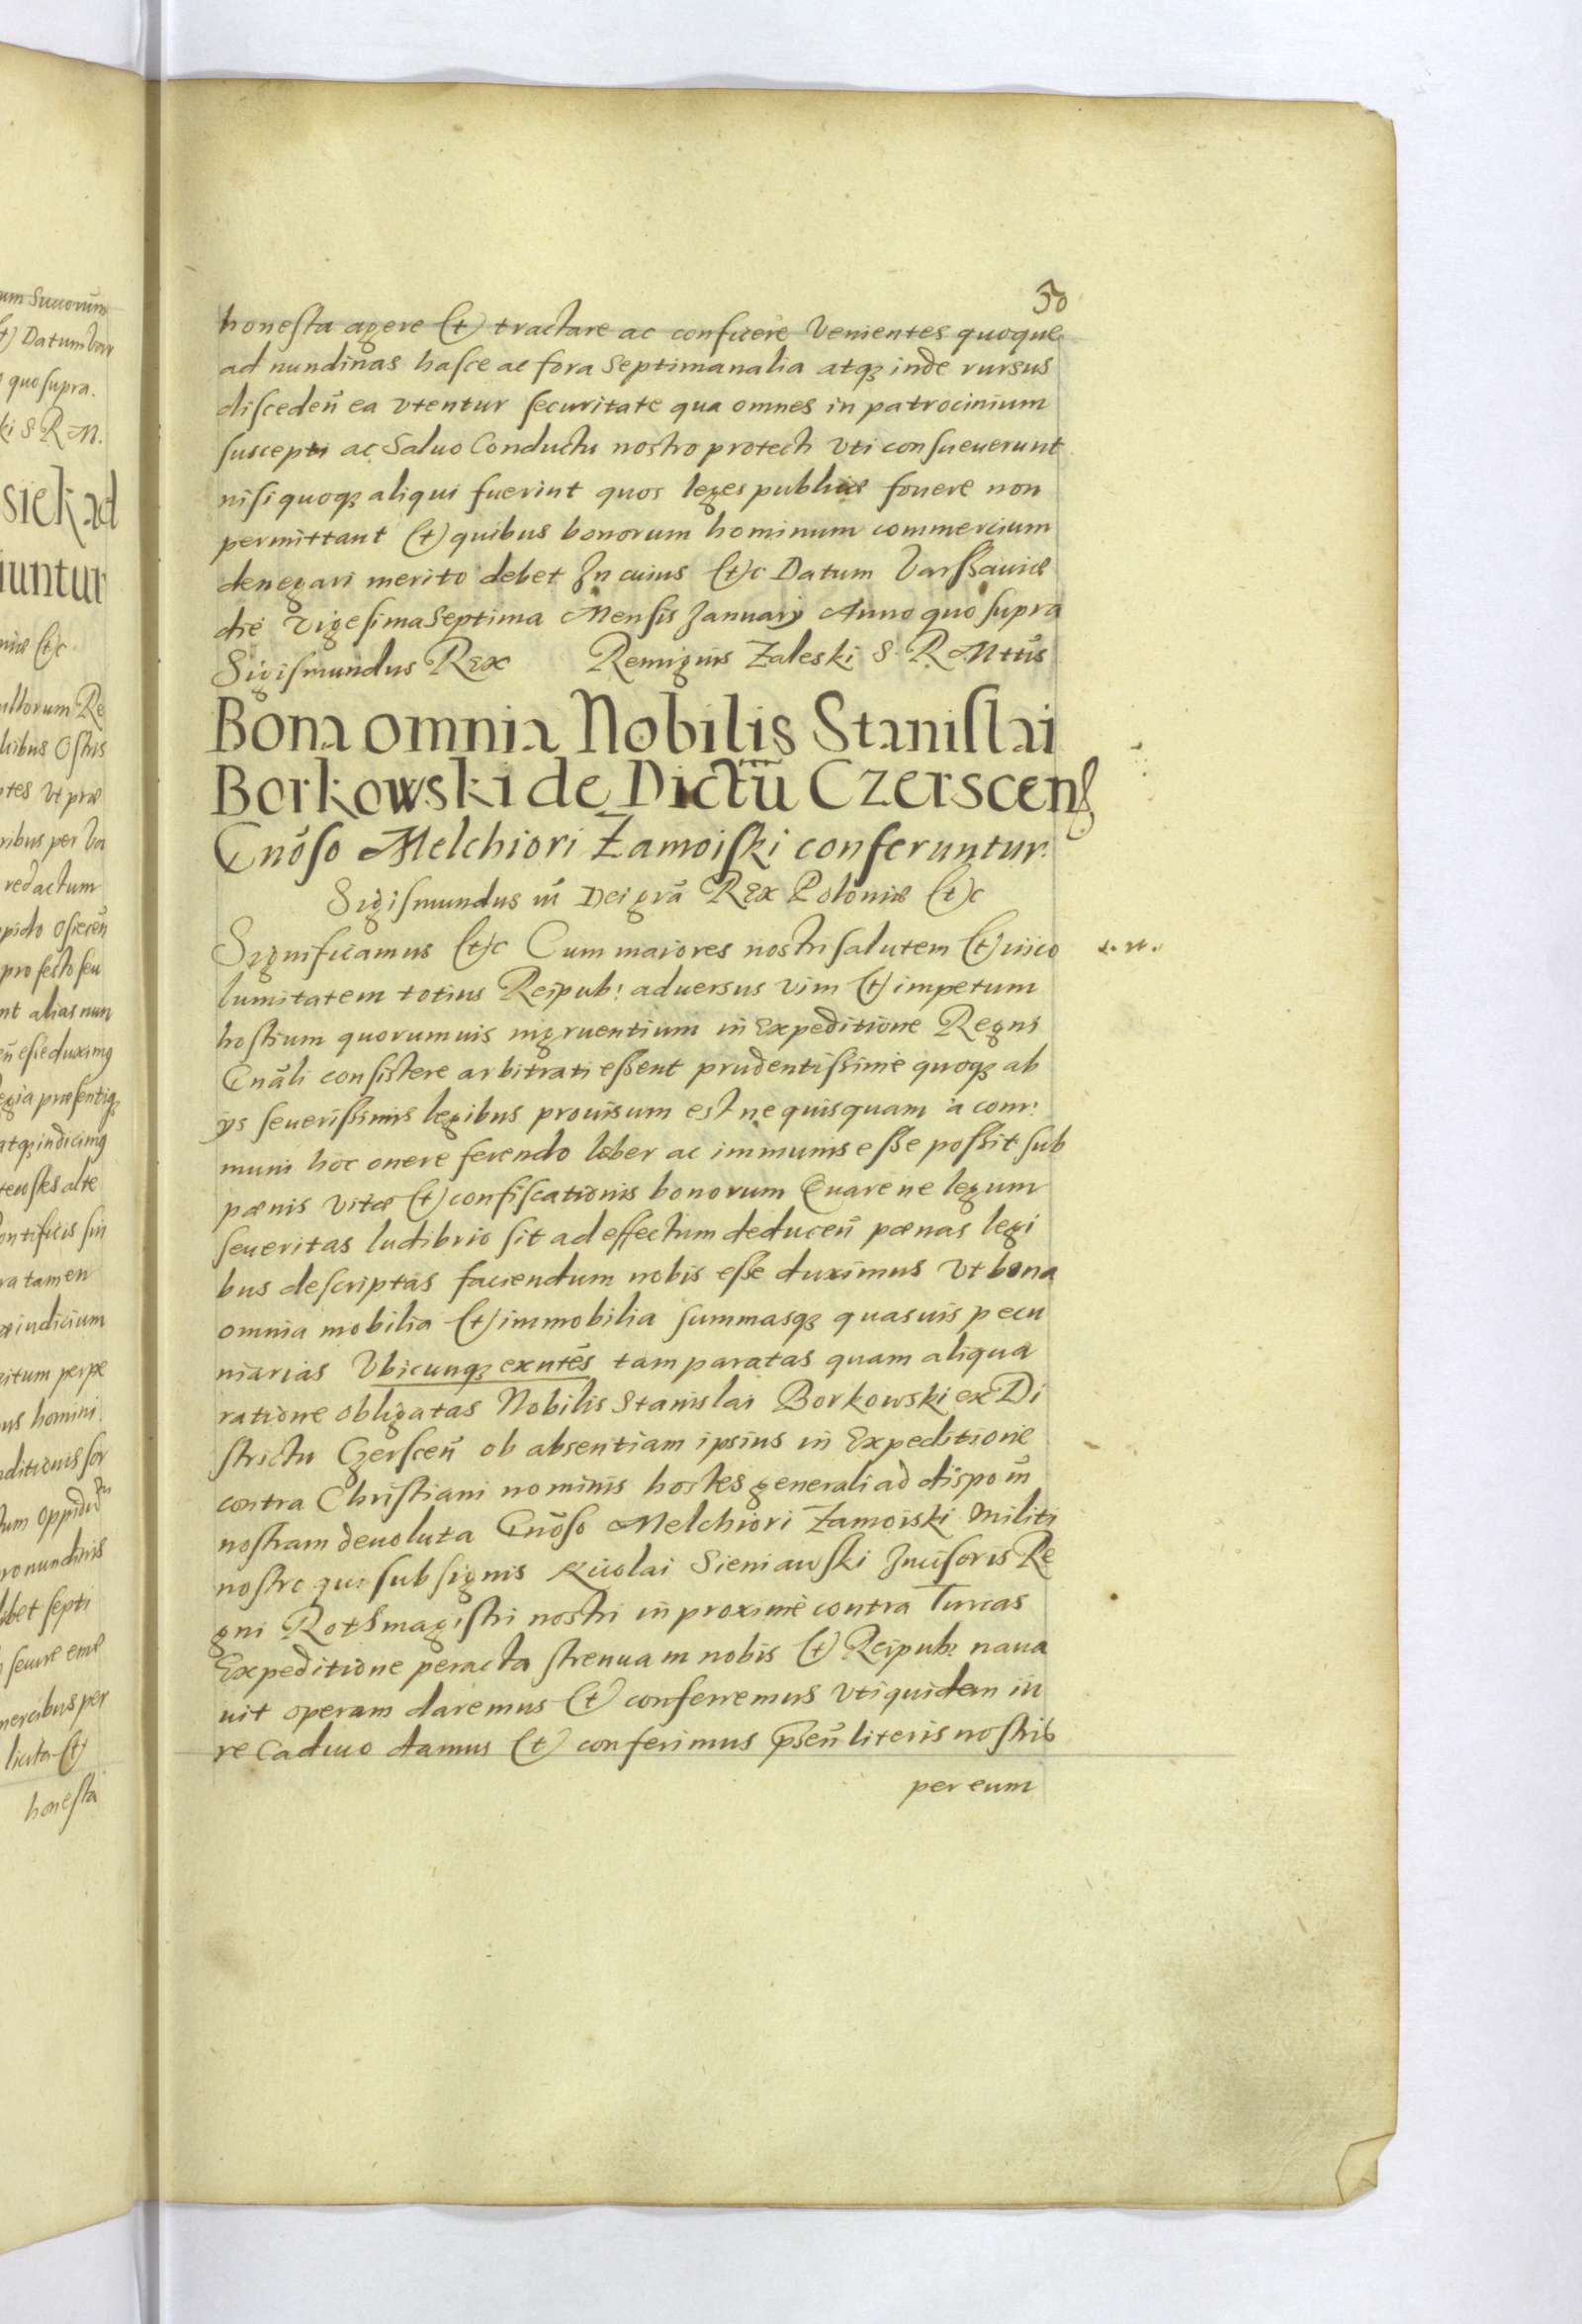 um Suuorum
(et) Datum Var
quo supra.
ki S R M.
siek ad
iuntur
niæ (et)c
ultorum Re
libus Ostris
ntes Vt præ
ribus per Va
redactum
pido Osiecen̄
pro festo seu
nt alias nun
en̄ esse duximꝰ
egia præsentiqꝫ
atqꝫ indicimꝰ
tenses alte
ontificis sin
ra tamen
æ iudicium
itum perpe
us homini
nditionis for
tum oppidum
ro nundinis
libet septi
seuire eme
mercibus per
licita (et)
honesta
50
honesta agere (et) tractare ac conficere Venientes quoque
ad nundinas hasce ac fora Septimanalia atqꝫ inde rursus
disceden̄ ea vtentur securitate qua omnes in patrocinium
suscepti ac Saluo Conductu nostro protecti vti consueuerunt
nisi quoqꝫ aliqui fuerint quos leges publicæ fouere non
permittant (et) quibus bonorum hominum commercium
denegari merito debet In cuius (et)c Datum Varssauiæ
die Vigesima Septima Mensis Januarij Anno quo supra
Sigismundus Rex Remigius Zaleski S. R. Mttis
Bona omnia Nobilis Stanislai
Borkowski de Dictū Czerscens
Gnōso Melchiori Zamoiski conferuntur.
Sigismundus iii Dei grā Rex Poloniæ (et)c
Significamus (et)c Cum maiores nostri salutem (et) inco
lumitatem totius Reipub: aduersus vim (et) impetum
hostium quorumuis ingruentium in Expeditione Regni
Gnāli consistere arbitrati essent prudentissime quoqꝫ ab
ijs seuerissimis legibus prouisum est ne quisquam a com:
muni hoc onere ferendo liber ac immunis esse possit sub
pænis vitæ (et) confiscationis bonorum Quare ne legum
seueritas ludibrio sit ad effectum deducen̄ pænas legi
bus descriptas faciendum nobis esse duximus Vt bona
omnia mobilia (et) immobilia summasqꝫ quasuis pecu
niarias Vbicunqꝫ exntēs tam paratas quam aliqua
ratione obligatas Nobilis Stanislai Borkowski ex Di
strictu Czerscen̄ ob absentiam ipsius in Expeditione
contra Christiani nominis hostes generali ad dispōin
nostram deuoluta Gnōso Melchiori Zamoiski Militi
nostro qui sub signis Nicolai Sieniawski Incisoris Re
gni Rothmagistri nostri in proxime contra Turcas
Expeditione peracta strenuam nobis (et) Reipub: naua
uit operam daremus (et) conferremus vti quidem iu
re Caduco damus (et) conferimus p̄sen̄ literis nostris
per eum